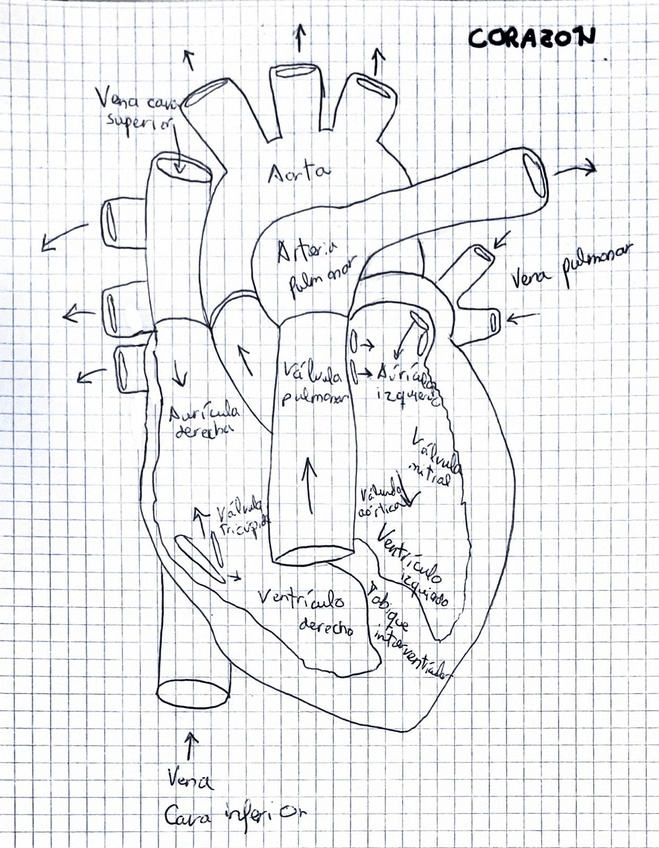 CORAZON
Vena cava
superior
Aorta
Arteria
pulmonar
Vena pulmonar
Válvula
pulmonar
Aurícula
izquierd
Aurícula
derecha
Válvula
mitral
Válvula
aórtica
Válvula
tricúpide
Ventrículo
izquierdo
Ventrículo
derecho
Tabique
interventricular
Vena
Cava inferior